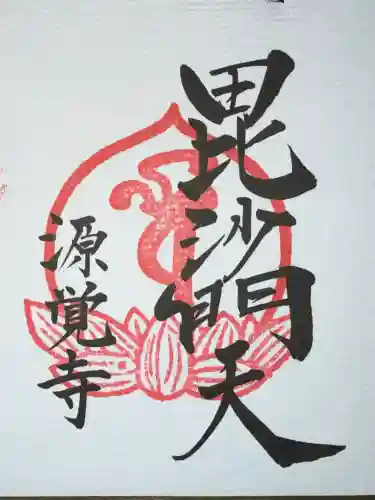 毘沙門天
源覚寺